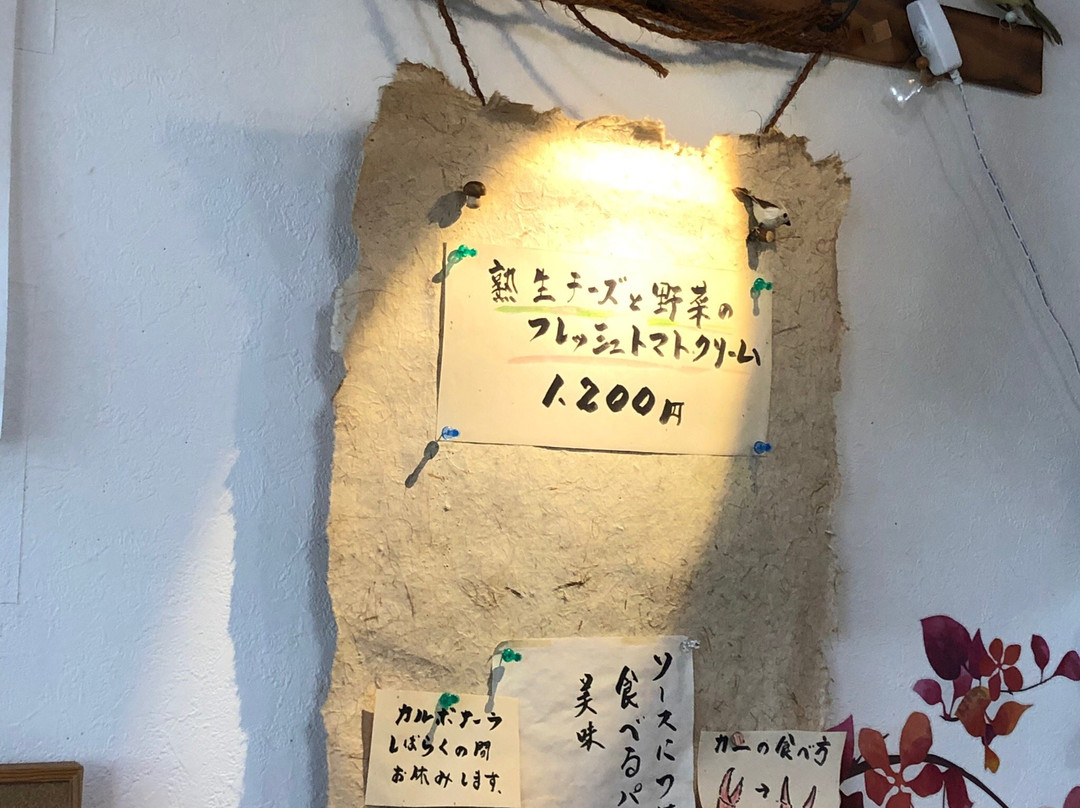 熟生チーズと野菜の
フレッシュトマトクリーム
1,200円
カルボナーラ
しばらくの間
お休みします。
ソースにつ
食べるパ
美味
カニの食べ方